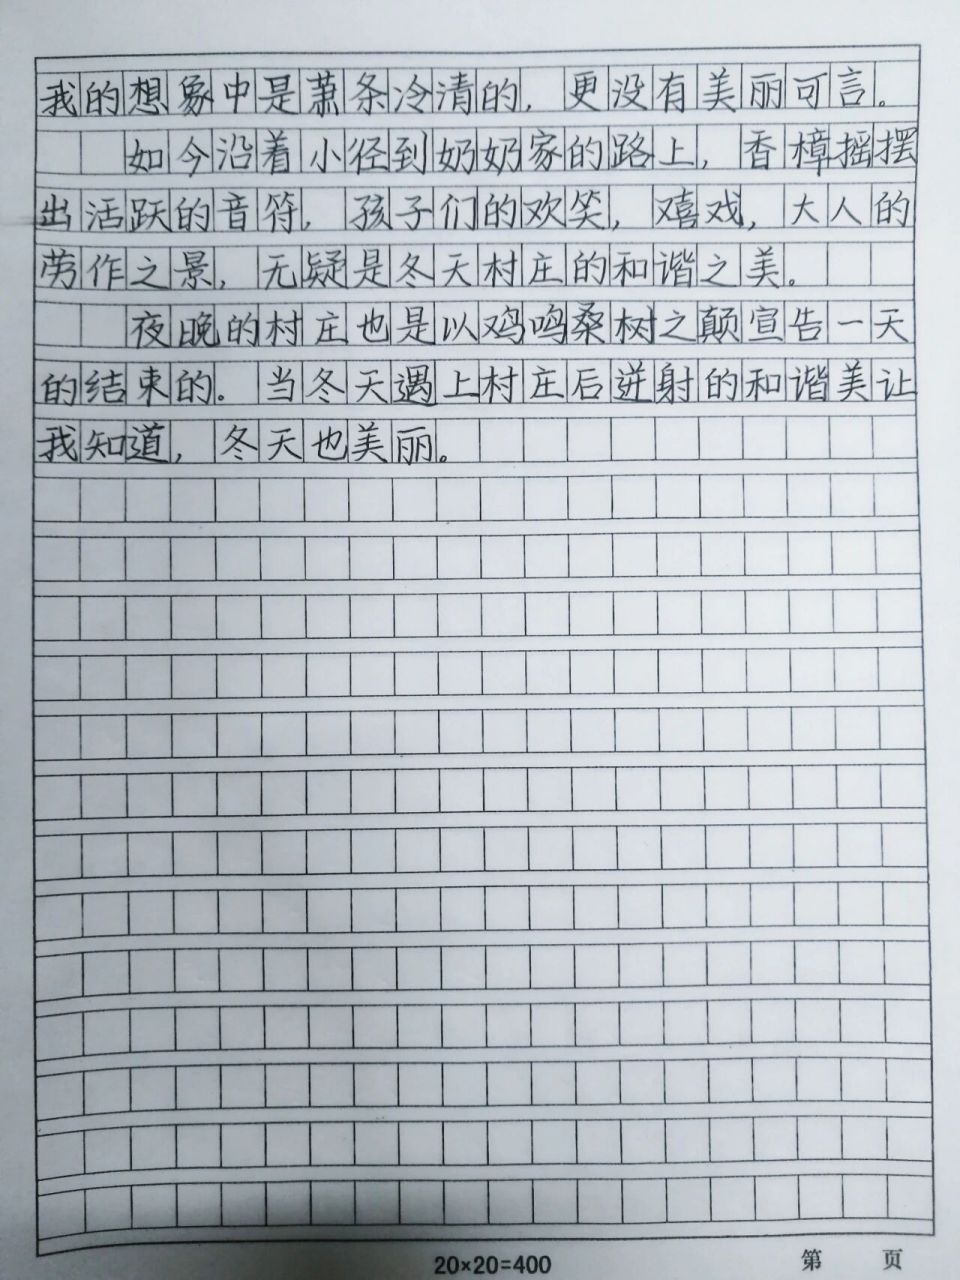 我的想象中是萧条冷清的，更没有美丽可言。
如今沿着小径到奶奶家的路上，香樟摇摆
出活跃的音符，孩子们的欢笑，嬉戏，大人的
劳作之景，无疑是冬天村庄的和谐之美。
夜晚的村庄也是以鸡鸣桑树之颠宣告一天
的结束的。当冬天遇上村庄后迸射的和谐美让
我知道，冬天也美丽。
20×20=400
第 页